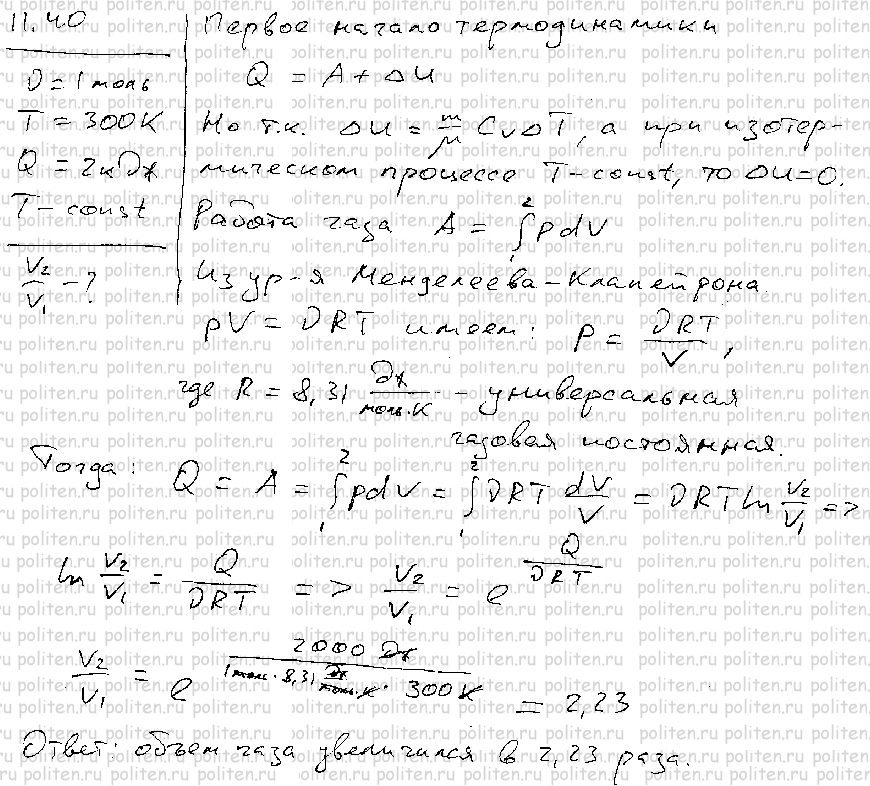 11.40
Первое начало термодинамики
ν = 1 моль
Q = A + ΔU
T = 300K
Но т.к. ΔU = m/μ CvΔT, а при изотер-
Q = 2кДж
мическом процессе T – const, то ΔU = 0.
T – const
Работа газа A = ∫₁² pdV
V₂/V₁ – ?
Из ур-я Менделеева – Клапейрона
pV = νRT имеем: p = νRT/V,
где R = 8,31 Дж/моль·К – универсальная
газовая постоянная.
Тогда: Q = A = ∫₁² pdV = ∫₁² νRT dV/V = νRT ln V₂/V₁ =>
ln V₂/V₁ = Q/νRT => V₂/V₁ = e^(Q/νRT)
V₂/V₁ = e^(2000 Дж/1моль·8,31 Дж/моль·К · 300K) = 2,23
Ответ: объем газа увеличился в 2,23 раза.
politen.ru